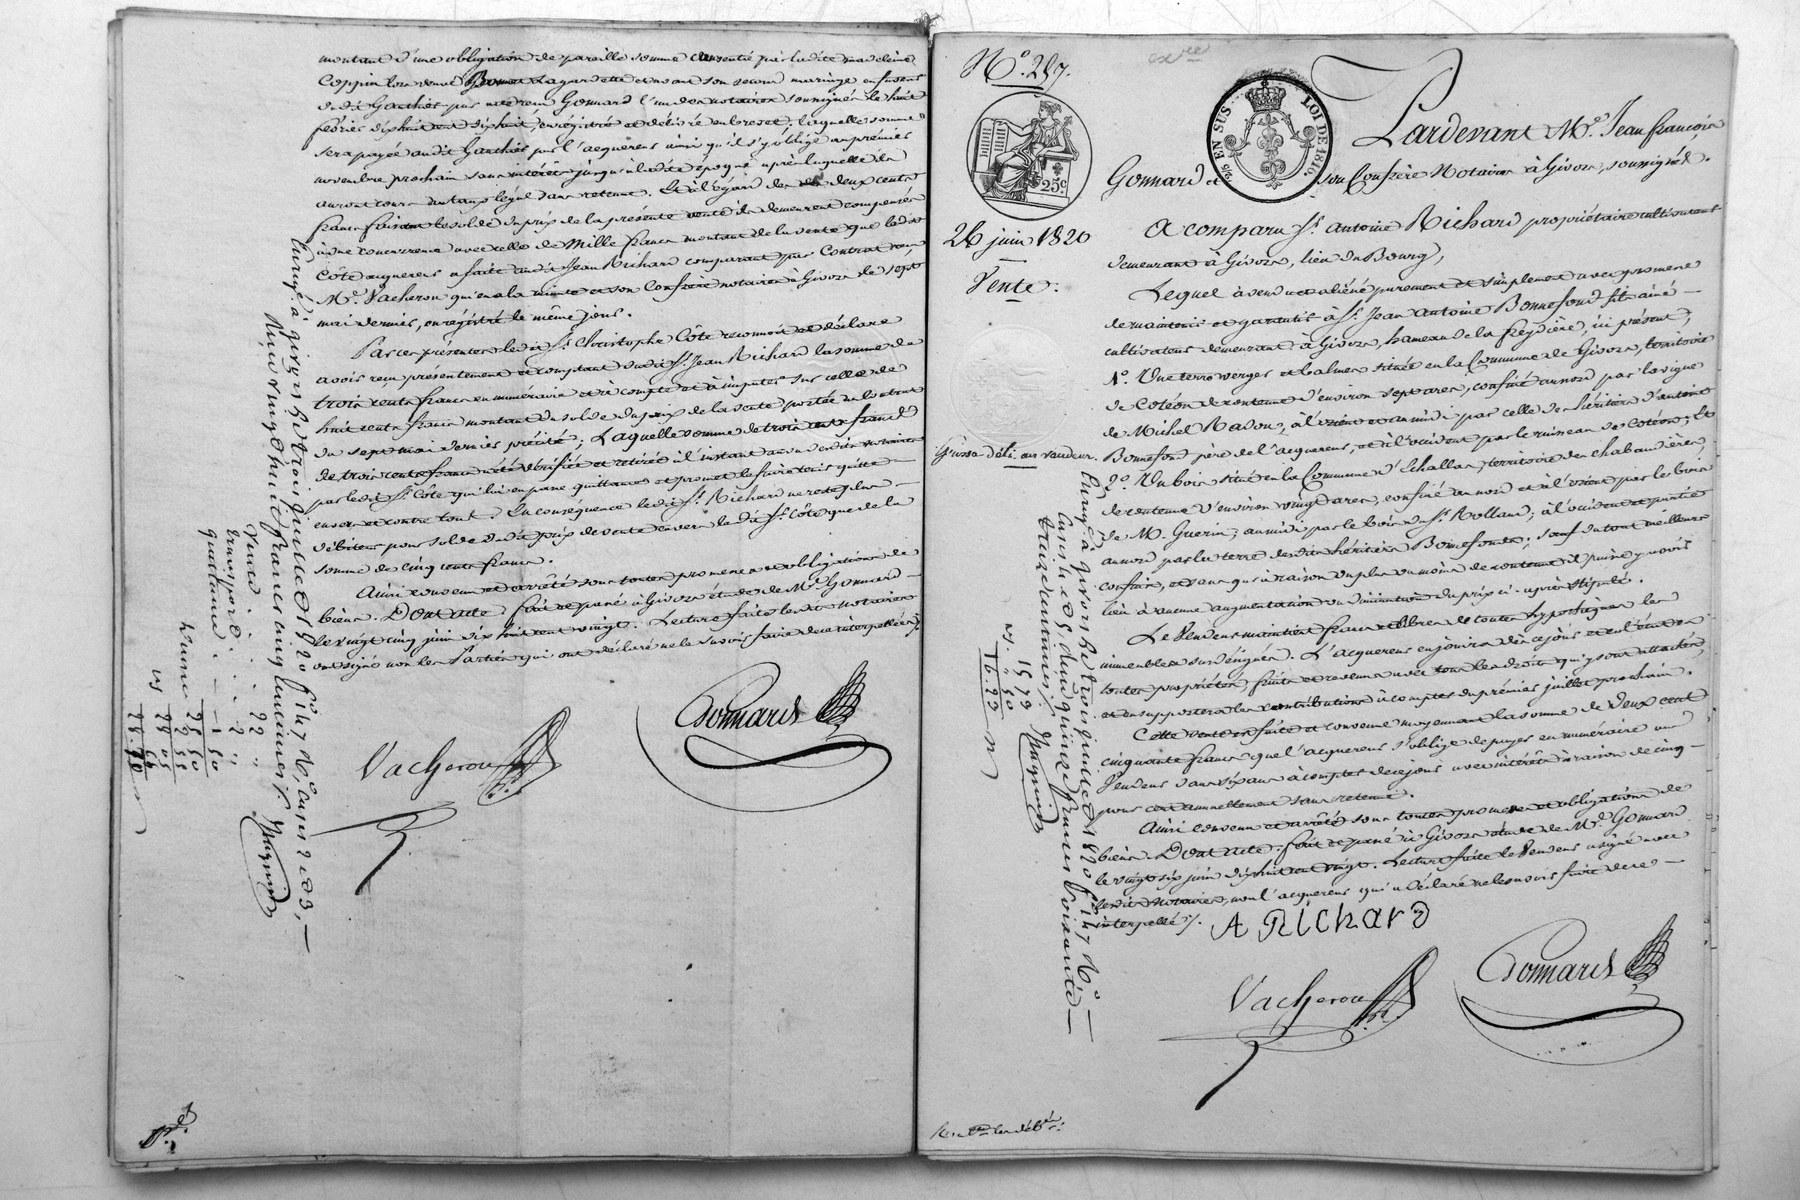 montant d'une obligation de pareille somme consentie par ladite madeleine
Coppin lors veuve Lagardette et avant son second mariage en faveur
dudit Gauthier par acte reçu Gonnard l'un des notaires soussignés le huit
février dix huit cent dix huit, enregistré et délivré en brevet; laquelle somme
sera payée audit Gauthier par l'acquereur ainsi qu'il s'y oblige au premier
novembre prochain sans intérêt jusqu'à ladite époque après laquelle ils
auront cours au taux légal sans retenue. Et à l'égard des deux cents
francs faisant le solde du prix de la présente vente ils demeurent compensés
à due concurrence avec celle de Mille francs montant de la vente que ledit
Côte acquereur a fait audit Jean Richard comparant par Contrat reçu
Me. Vacheron qui en a la minute et son Confrère notaires à Givors le sept
mai dernier, enregistré le même jour.
Par ces présentes ledit Sr. Christophe Côte reconnoit et déclare
avoir reçu présentement et comptant dudit Sr. Jean Richard la somme de
trois cents francs en numéraire et à compte et à imputer sur celle de
huit cents francs montant du solde du prix de la vente portée au Contrat
du sept mai dernier précité; Laquelle somme de trois cents francs
de trois cents francs a été vérifiée et retirée à l'instant au vu desdits notaires
par ledit Sr. Côte qui lui en passe quittance et promet le faire tenir quitte
envers et contre tout. En conséquence ledit Sr. Richard ne reste plus
débiteur pour solde dudit prix de vente envers ledit Sr. Côte que de la
somme de cinq cents francs.
Ainsi convenu et arrêté sous toutes promesses et obligations de
biens. Dont acte. Fait et passé à Givors étude de Me. Gonnard
le vingt cinq juin dix huit cent vingt. Lecture faite lesdits notaires
ont signé non les Parties qui ont déclaré ne le savoir faire de ce interpellées ./.
Gonnard
Vacheron
Enregé. à givors le trois juillet 1820 fo. 147 Ro. cases 2 et 3, —
Reçu vingt huit francs cinq centimes ./. Magnin
Vente . . . 22 "
quittance . . 1 50
25 50
2 55
28 05
No. 257.
25c.
25c EN SUS
LOI DE 1816.
26 juin 1820
Vente.
Grosse déliv. au vendeur.
Pardevant Me. Jean françois
Gonnard et son Confrère Notaires à Givors, soussignés.
A comparu Sr. Antoine Richard propriétaire cultivateur
demeurant à Givors, lieu du Bourg,
Lequel a vendu et aliéné purement et simplement avec promesse
de maintenir et garantir à Sr. Jean Antoine Bonnefond fils ainé —
cultivateur demeurant à Givors, hameau de la freydière, ici présent,
1o. Une terre verger et balmes située en la Commune de Givors, territoire
de Cotéon de contenue d'environ sept ares, confiné au nord par la vigne
de Michel Radou, à l'orient et au midi par celle des héritiers d'antoine
Bonnefond père de l'acquereur, et à l'occident par le ruisseau de Cotéon; Et
2o. Un bois situé en la Commune d'Echallas, territoire des chabaudières,
de contenue d'environ vingt ares, confiné au nord et à l'orient par le bois
de M. Guerin, au midi par le bois du Sr. Rolland, à l'occident et partie
au nord par la terre desdits héritiers Bonnefonds; sauf du tout meilleurs
confins, et sans qu'à raison du plus ou moins de contenue il puisse y avoir
lieu à aucune augmentation ou diminution du prix ci-après stipulé.
Le Vendeur maintient francs et libres de toutes hypothèques les
immeubles sus désignés. L'acquereur en jouira dès ce jour et en l'état en
toutes propriétés, fruits et revenus avec tous les droits qui y sont attachés,
et en supportera les contributions à compter du premier juillet prochain.
Cette vente est faite et convenue moyennant la somme de Deux cent
cinquante francs que l'acquereur s'oblige de payer en numéraire au
Vendeur dans six ans à compter de ce jour avec intérêts à raison de cinq —
pour cent annuellement sans retenue.
Ainsi convenu et arrêté sous toutes promesses et obligations de
biens. Dont acte. Fait et passé à Givors étude de Me. Gonnard
le vingt six juin dix huit cent vingt. Lecture faite le Vendeur a signé avec
lesdits notaires, non l'acquereur qui a déclaré ne le savoir faire de ce —
interpellé ./.
A Richard
Gonnard
Vacheron
Enregé. à givors le trois juillet 1820 fo. 147 Ro. —
cases 4 et 5, deux quinze francs soixante —
treize centimes ./. Magnin
15 73
" 50
16. 23